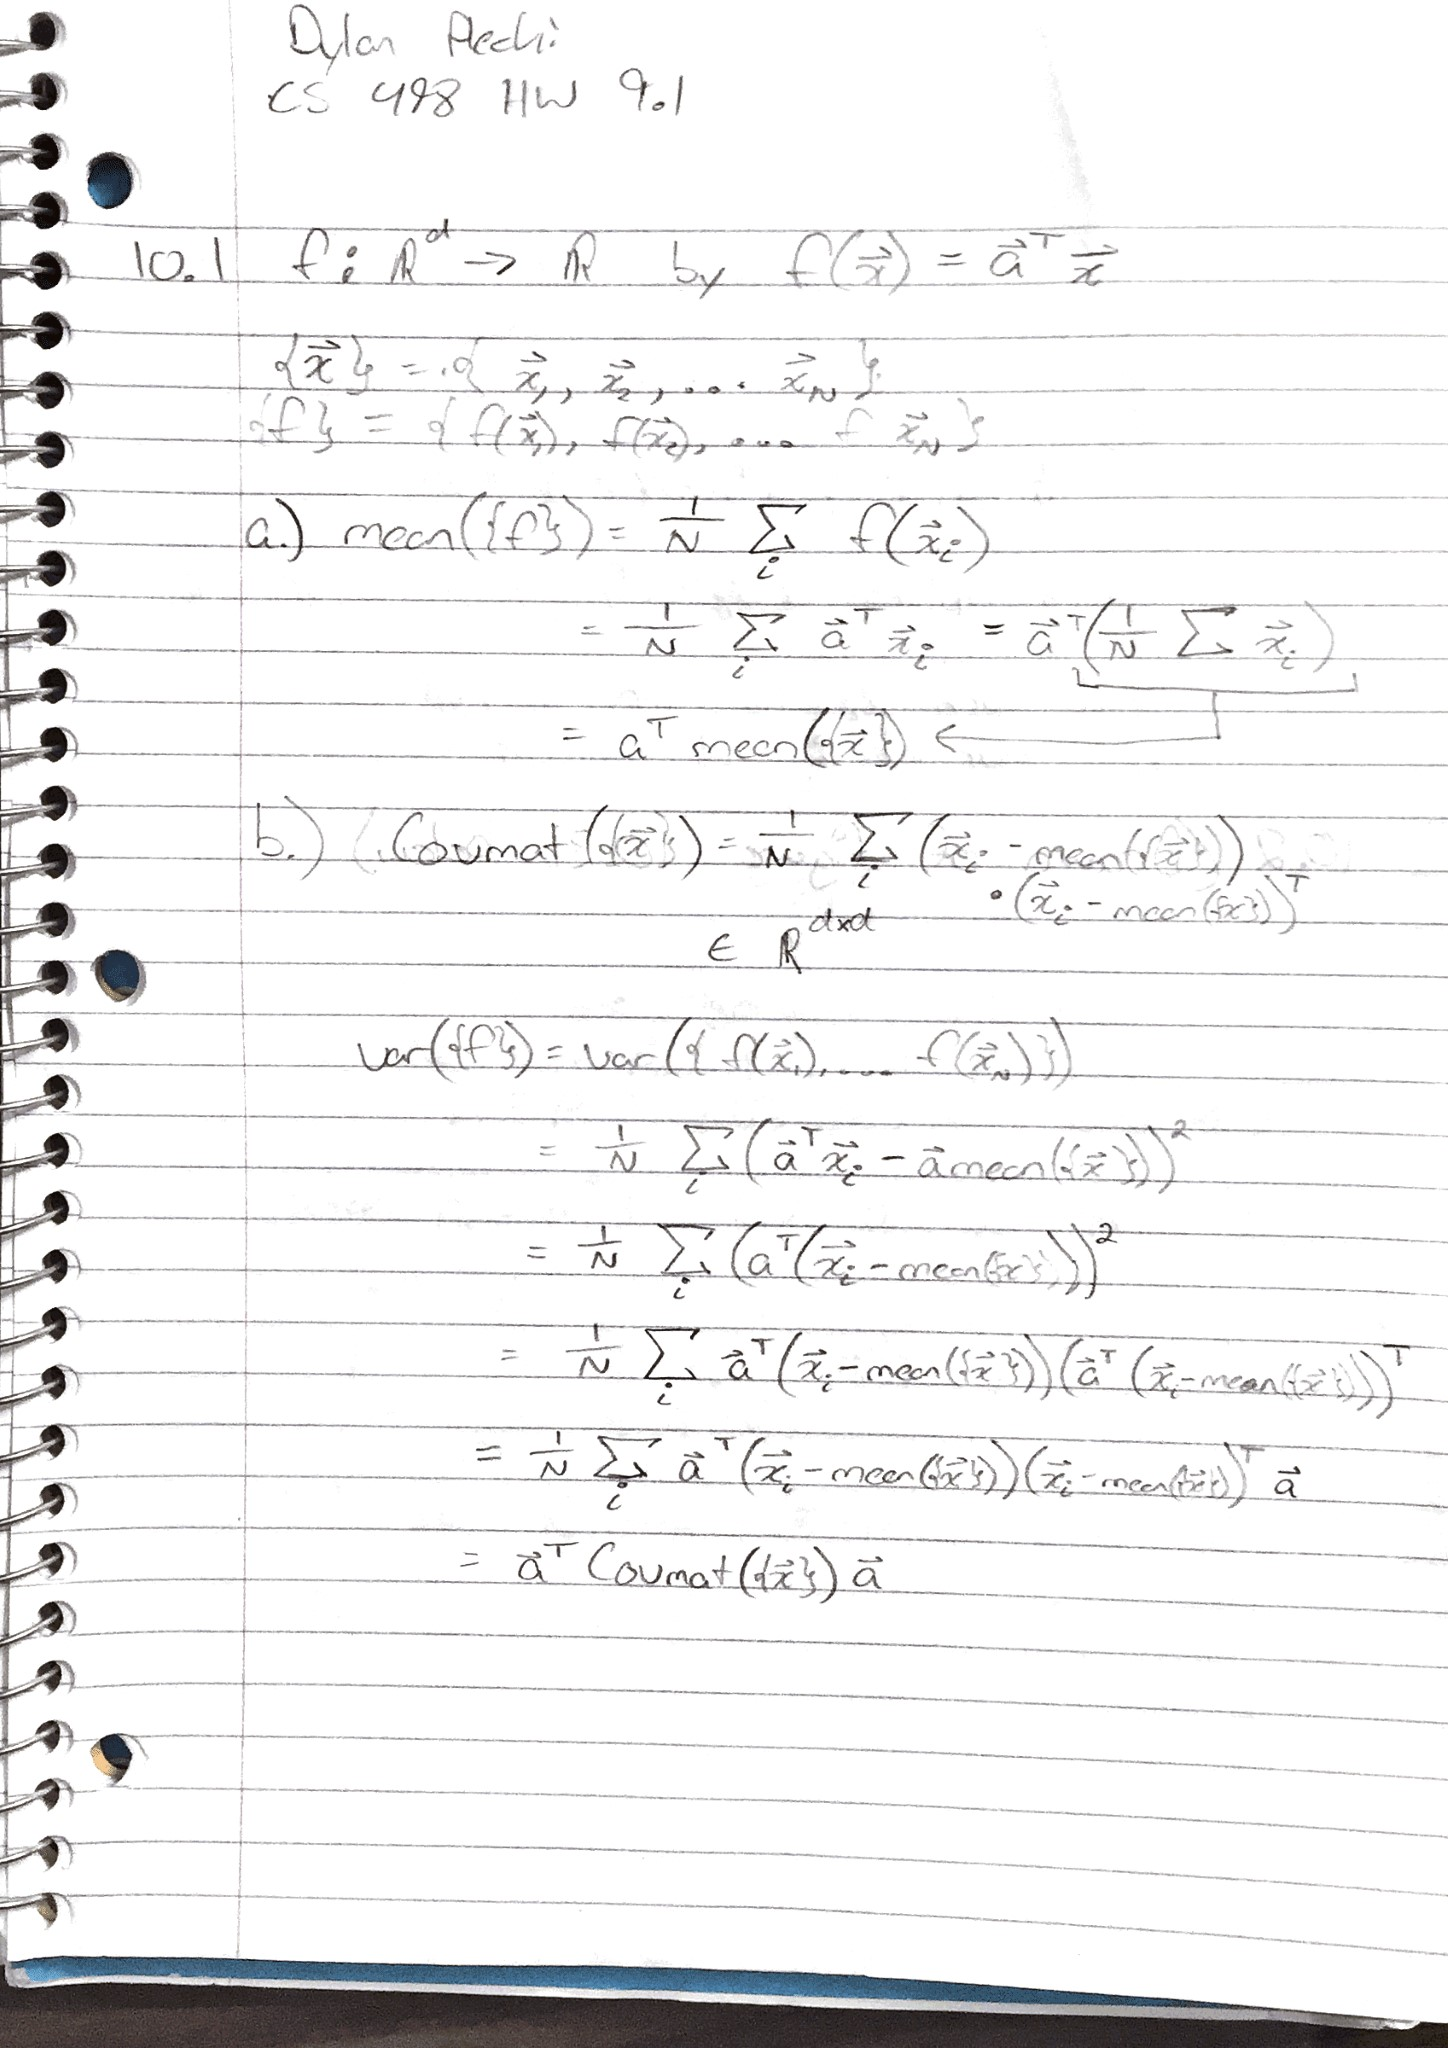 Dylan
CS 498 HW 9.1
10.1 f: ℝ^d → ℝ by f(x⃗) = a⃗^T x⃗
{x⃗} = { x⃗₁, x⃗₂, ... x⃗_N }
{f} = { f(x⃗₁), f(x⃗₂), ... f x⃗_N }
a.) mean({f}) = 1/N Σ_i f(x⃗_i)
= 1/N Σ_i a⃗^T x⃗_i = a⃗^T (1/N Σ x⃗_i)
= a^T mean({x⃗}) ←
b.) Covmat({x⃗}) = 1/N Σ_i (x⃗_i - mean({x⃗}))
• (x⃗_i - mean({x}))^T
∈ ℝ^{d×d}
var({f}) = var({ f(x⃗₁), ... f(x⃗_N) })
= 1/N Σ_i (a⃗^T x⃗_i - a⃗ mean({x⃗}))²
= 1/N Σ_i (a^T (x⃗_i - mean({x})))²
= 1/N Σ_i a⃗^T (x⃗_i - mean({x⃗})) (a⃗^T (x⃗_i - mean({x⃗})))^T
= 1/N Σ_i a⃗^T (x⃗_i - mean({x⃗})) (x⃗_i - mean({x⃗}))^T a⃗
= a⃗^T Covmat({x⃗}) a⃗